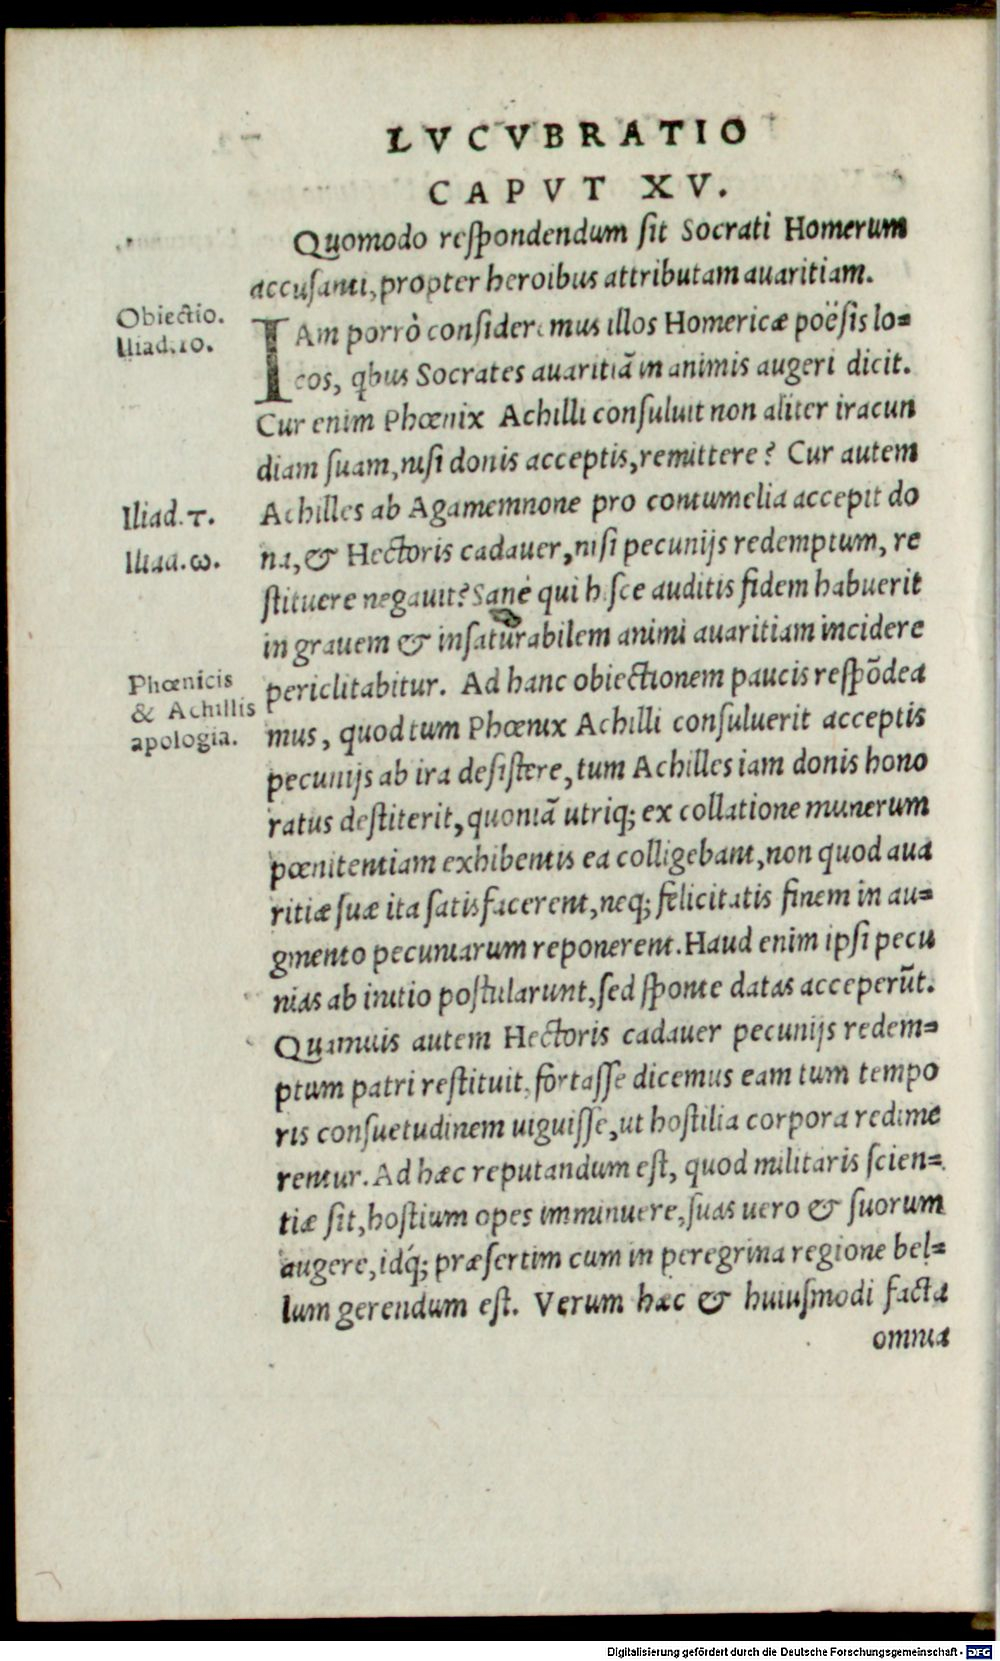 LVCVBRATIO
CAPVT XV.
Quomodo respondendum sit Socrati Homerum
accusanti, propter heroibus attributam auaritiam.
Obiectio.
Iliad.10.
IAm porrò consideremus illos Homericæ poësis lo=
cos, qbus Socrates auaritiã in animis augeri dicit.
Cur enim Phœnix Achilli consuluit non aliter iracun
diam suam, nisi donis acceptis, remittere? Cur autem
Iliad.τ.
Achilles ab Agamemnone pro contumelia accepit do
Iliad.ω.
na, & Hectoris cadauer, nisi pecunijs redemptum, re
stituere negauit? Sanè qui hisce auditis fidem habuerit
in grauem & insaturabilem animi auaritiam incidere
Phœnicis
& Achillis
apologia.
periclitabitur. Ad hanc obiectionem paucis respõdea
mus, quod tum Phœnix Achilli consuluerit acceptis
pecunijs ab ira desistere, tum Achilles iam donis hono
ratus destiterit, quoniã utriq; ex collatione munerum
pœnitentiam exhibentis ea colligebant, non quod aua
ritiæ suæ ita satisfacerent, neq; felicitatis finem in au=
gmento pecuniarum reponerent. Haud enim ipsi pecu
nias ab initio postularunt, sed sponte datas acceperũt.
Quamuis autem Hectoris cadauer pecunijs redem=
ptum patri restituit, fortasse dicemus eam tum tempo
ris consuetudinem uiguisse, ut hostilia corpora redime
rentur. Ad hæc reputandum est, quod militaris scien=
tiæ sit, hostium opes imminuere, suas uero & suorum
augere, idq́; præsertim cum in peregrina regione bel=
lum gerendum est. Verum hæc & huiusmodi facta
omnia
Digitalisierung gefördert durch die Deutsche Forschungsgemeinschaft - DFG